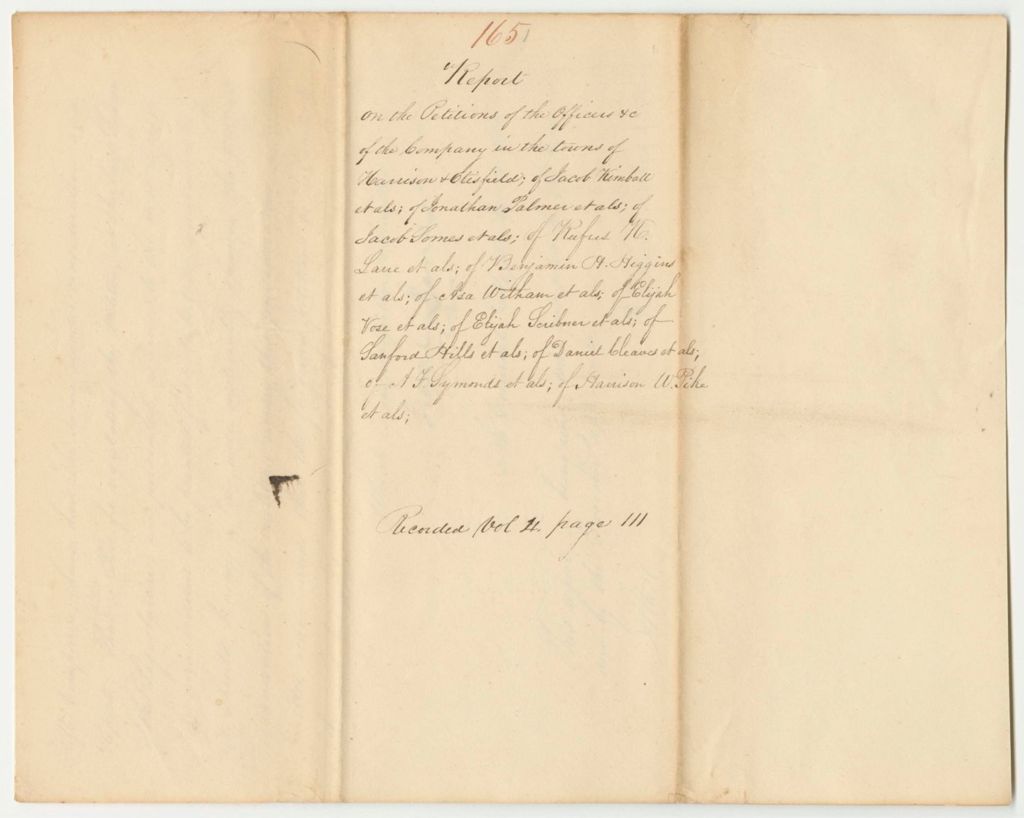 165
Report
on the Petitions of the Officers &c
of the Company in the towns of
Harrison & Otisfield; of Jacob Kimball
et als; of Jonathan Palmer et als; of
Jacob Somes et als; of Rufus K.
Lane et als; of Benjamin A. Higgins
et als; of Asa Witham et als; of Elijah
Vose et als; of Elijah Scribner et als; of
Sanford Hills et als; of Daniel Cleaves et als;
A F Symonds et als; of Harrison W. Pike
et als;
Recorded Vol 4. page 111